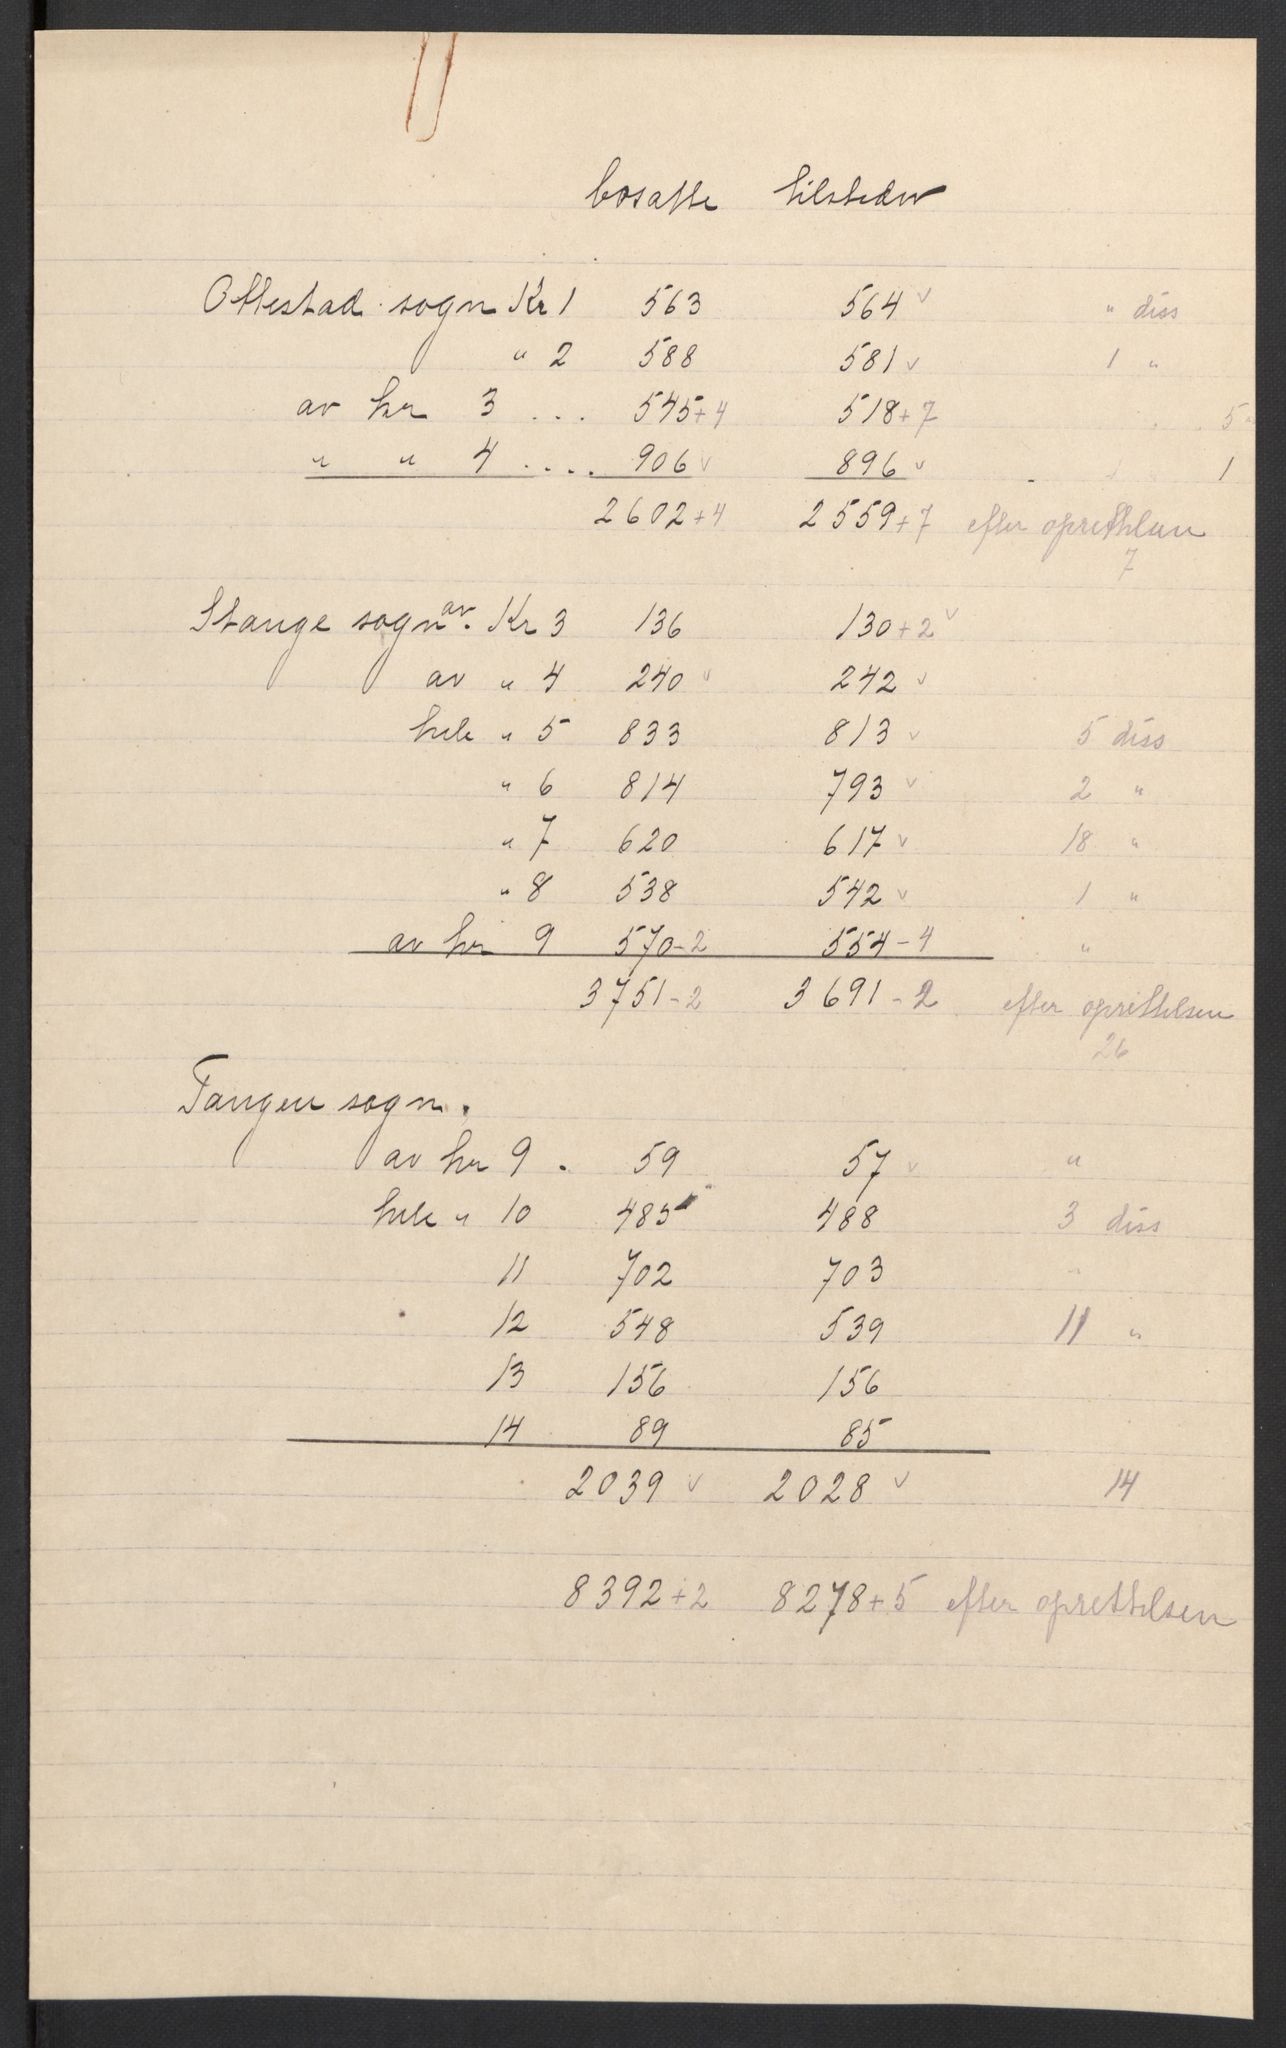 bosatte tilstedev
Ottestad sogn Kr 1 563 564 v " diss
" 2 588 581 v 1 "
av kr 3 ... 545+4 518+7 5 "
" " 4 .... 906 v 896 v 1
2602+4 2559+7 efter oprettelsen
7
Stange sogn av Kr 3 136 130+2 v
av " 4 240 v 242 v
hele " 5 833 813 v 5 diss
" 6 814 793 v 2 "
" 7 620 617 v 18 "
" 8 538 542 v 1 "
av kr 9 570-2 554-4 "
3751-2 3691-2 efter oprettelsen
26
Tangen sogn.
av kr 9 . 59 57 v "
hele " 10 485 488 3 diss
11 702 703 "
12 548 539 11 "
13 156 156
14 89 85
2039 v 2028 v 14
8392+2 8278+5 efter oprettelsen